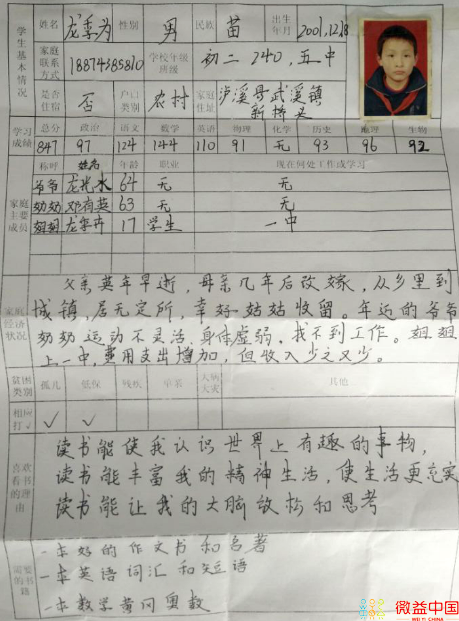 姓名 龙季为 性别 男 民族 苗 出生年月 2001,12,18
学生基本情况
家庭联系方式 18874385810 学校年级班级 初二 240，五中
是否住宿 否 户口类别 农村 家庭住址 泸溪县武溪镇
新桥头
学习成绩 总分 政治 语文 数学 英语 物理 化学 历史 地理 生物
847 97 124 144 110 91 无 93 96 92
称呼 姓名 年龄 职业 现在何处工作或学习
家庭主要成员
爷爷 龙光水 64 无 无
奶奶 邓有英 63 无 无
姐姐 17 学生 一中
家庭经济状况
父亲英年早逝，母亲几年后改嫁，从乡里到
城镇，居无定所，幸好姑姑收留。年迈的爷爷
奶奶运动不灵活，身体虚弱，找不到工作。姐姐
上一中，费用支出增加，但收入少之又少。
贫困类别 孤儿 低保 残疾 单亲 大病大灾 其他
相应打√ √ √
喜欢看书的理由
读书能使我认识世界上有趣的事物，
读书能丰富我的精神生活，使生活更充实
读书能让我的大脑放松和思考
需要的书籍
一本好的作文书和名著
一本英语词汇和短语
一本数学黄冈奥数
微益中国
WEIYI CHINA